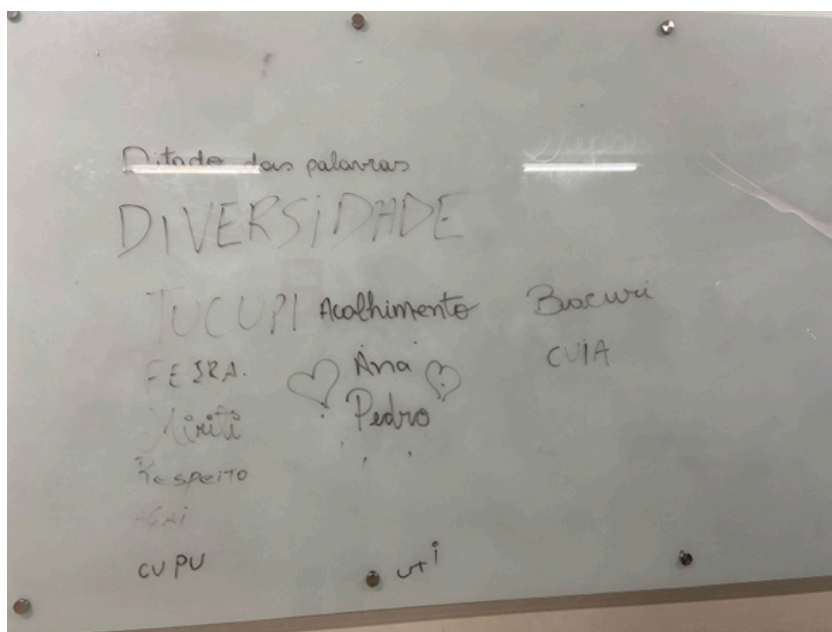 Ditado das palavras
DIVERSIDADE
TUCUPI Acolhimento Bacuri
FEIRA. Ana CUIA
Miriti Pedro
Respeito
AÇAI
CUPU
uti